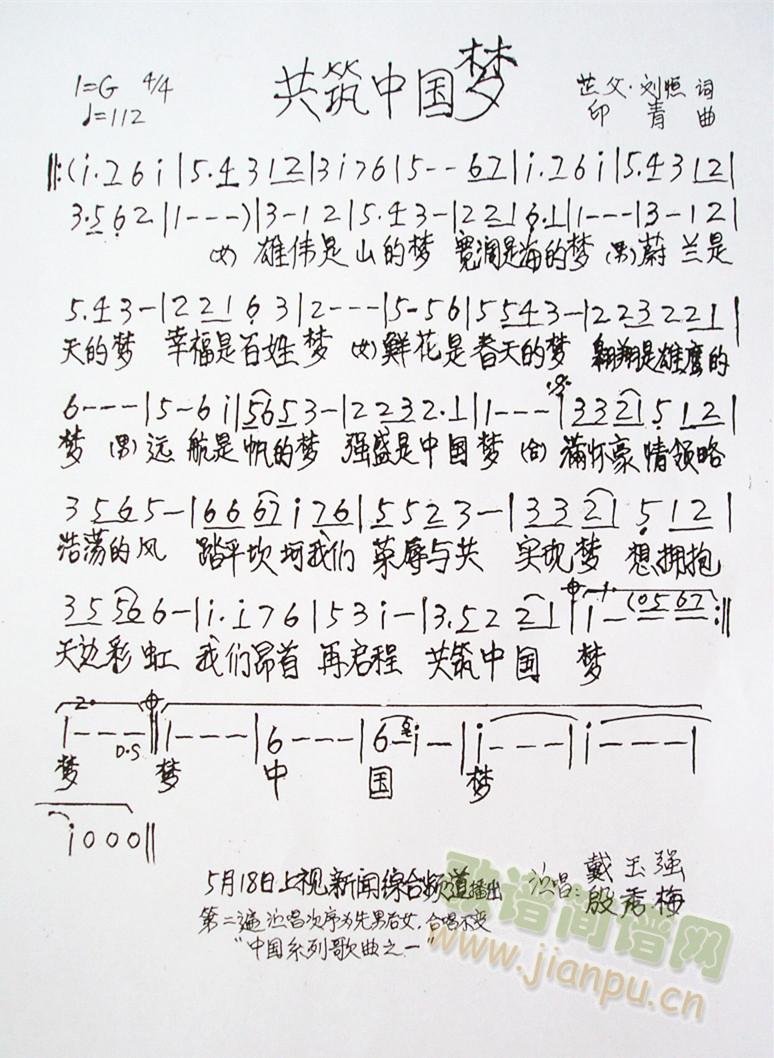 共筑中国梦
1=G 4/4
♩=112
芷父·刘恒 词
印青 曲
‖:(i·7 6 i|5·4 3 1 2|3 i 7 6|5--6 7|i·7 6 i|5·4 3 1 2|
3·5 6 2|1---)|3-1 2|5·4 3-|2 2 1 6·1|1---|3-1 2|
(女) 雄伟是 山的梦 宽阔是海的梦 (男) 蔚兰是
5·4 3-|2 2 1 6 3|2---|5-5 6|5 5 4 3-|2 2 3 2 2 1|
天的梦 幸福是百姓梦 (女) 鲜花是春天的梦 翱翔是雄鹰的
6---|5-6 i|5 6 5 3-|2 2 3 2·1|1---|3 3 2 1 5 1 2|
梦 (男) 远航是帆的梦 强盛是中国梦 (合) 满怀豪情领略
3 5 6 5-|6 6 6 7 i 7 6|5 5 2 3-|3 3 2 1 5 1 2|
浩荡的风 踏平坎坷我们 荣辱与共 实现梦想拥抱
3 5 5 6 6-|i·i 7 6|5 3 i-|3·5 2 2 1|1-(0 5 6 7:‖
天边彩虹 我们昂首 再启程 共筑中国 梦
1---‖1---|6---|6 i--|i---|i---|
D.S
梦 梦 中 国 梦
i 0 0 0‖
5月18日上视新闻综合频道播出
演唱：戴玉强
殷秀梅
第二遍演唱次序为先男后女，合唱不变
"中国系列歌曲之一"
歌谱简谱网
www.jianpu.cn